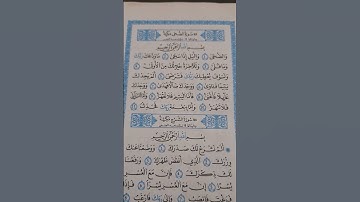 سورة الضحى مكية
بسم الله الرحمن الرحيم
والضحى والليل إذا سجى ما ودعك ربك
وما قلى وللآخرة خير لك من الأولى
ولسوف يعطيك ربك فترضى ألم يجدك
يتيما فآوى ووجدك ضالا فهدى ووجدك
عائلا فأغنى فأما اليتيم فلا تقهر وأما السائل
فلا تنهر وأما بنعمة ربك فحدث
سورة الشرح مكية
بسم الله الرحمن الرحيم
ألم نشرح لك صدرك ووضعنا عنك
وزرك الذي أنقض ظهرك ورفعنا
لك ذكرك فإن مع العسر
يسرا إن مع العسر يسرا فإذا
فرغت فانصب وإلى ربك فارغب